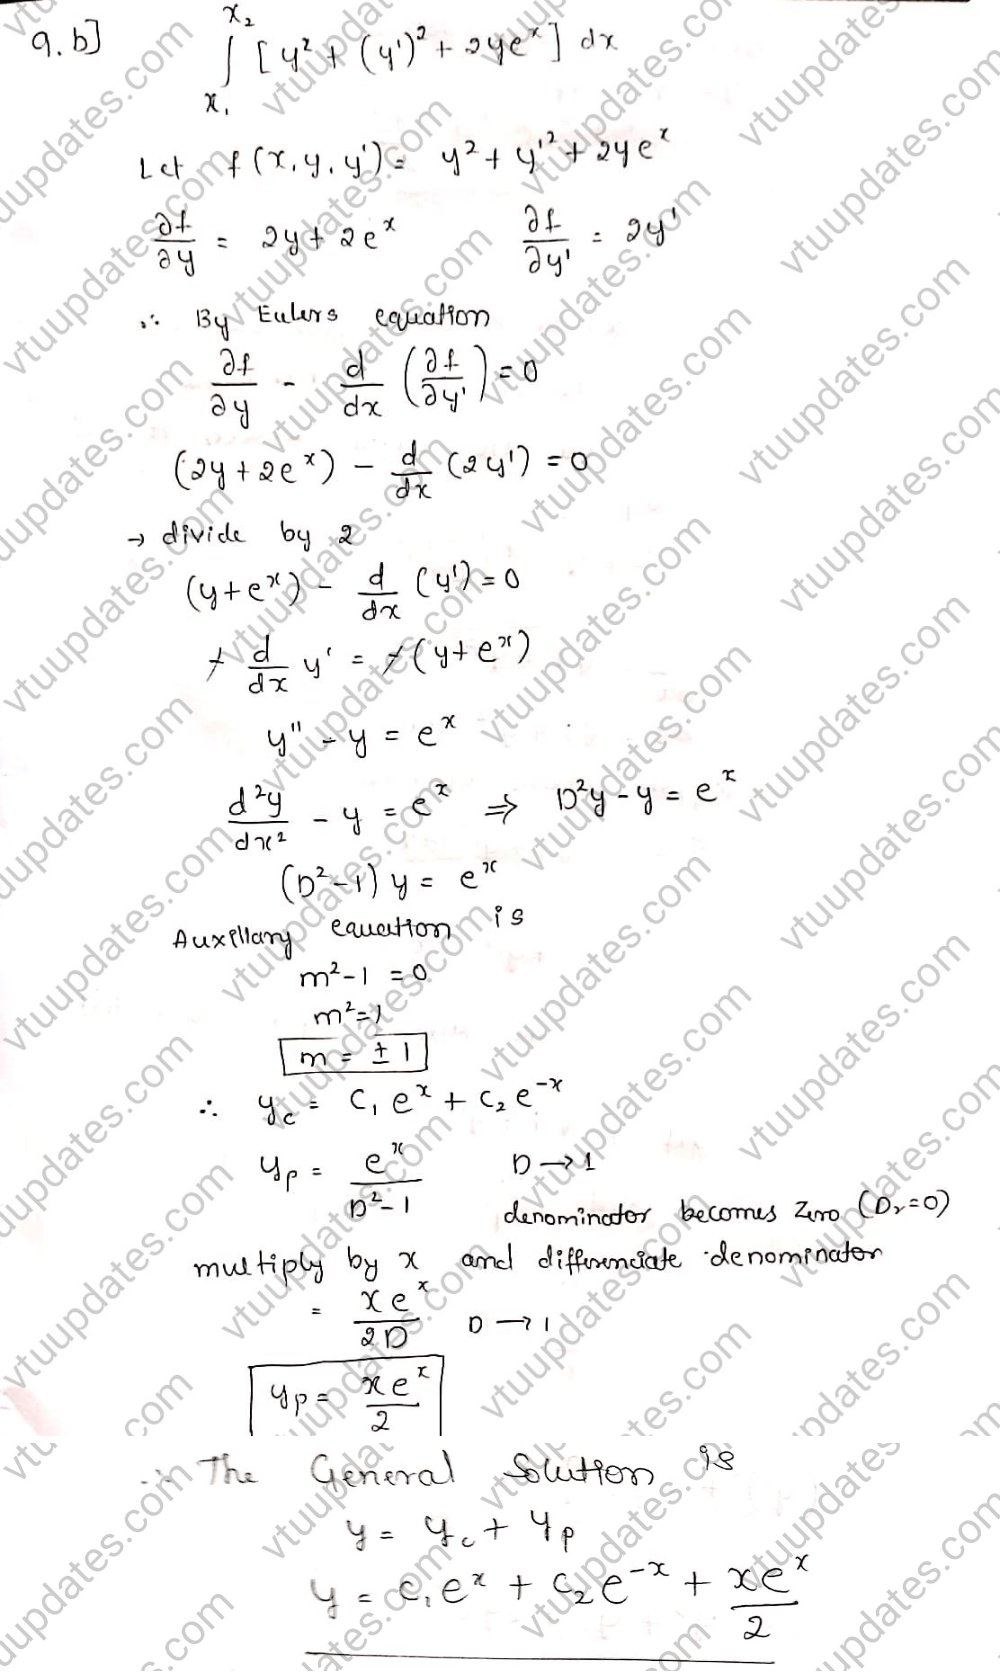 9.b]
∫ₓ₁^x₂ [y² + (y')² + 2yeˣ] dx
Let f(x, y, y') = y² + y'² + 2yeˣ
∂f/∂y = 2y + 2eˣ ∂f/∂y' = 2y'
∴ By Eulers equation
∂f/∂y - d/dx (∂f/∂y') = 0
(2y + 2eˣ) - d/dx (2y') = 0
→ divide by 2
(y + eˣ) - d/dx (y') = 0
- d/dx y' = -(y + eˣ)
y'' - y = eˣ
d²y/dx² - y = eˣ ⇒ D²y - y = eˣ
(D² - 1) y = eˣ
Auxillary equation is
m² - 1 = 0
m² = 1
m = ± 1
∴ y_c = C₁ eˣ + C₂ e⁻ˣ
y_p = eˣ/(D² - 1) D → 1
denominator becomes Zero (Dr = 0)
multiply by x and differenciate denominator
= xeˣ/2D D → 1
y_p = xeˣ/2
∴ The General Solution is
y = y_c + y_p
y = C₁eˣ + C₂e⁻ˣ + xeˣ/2
vtuupdates.com